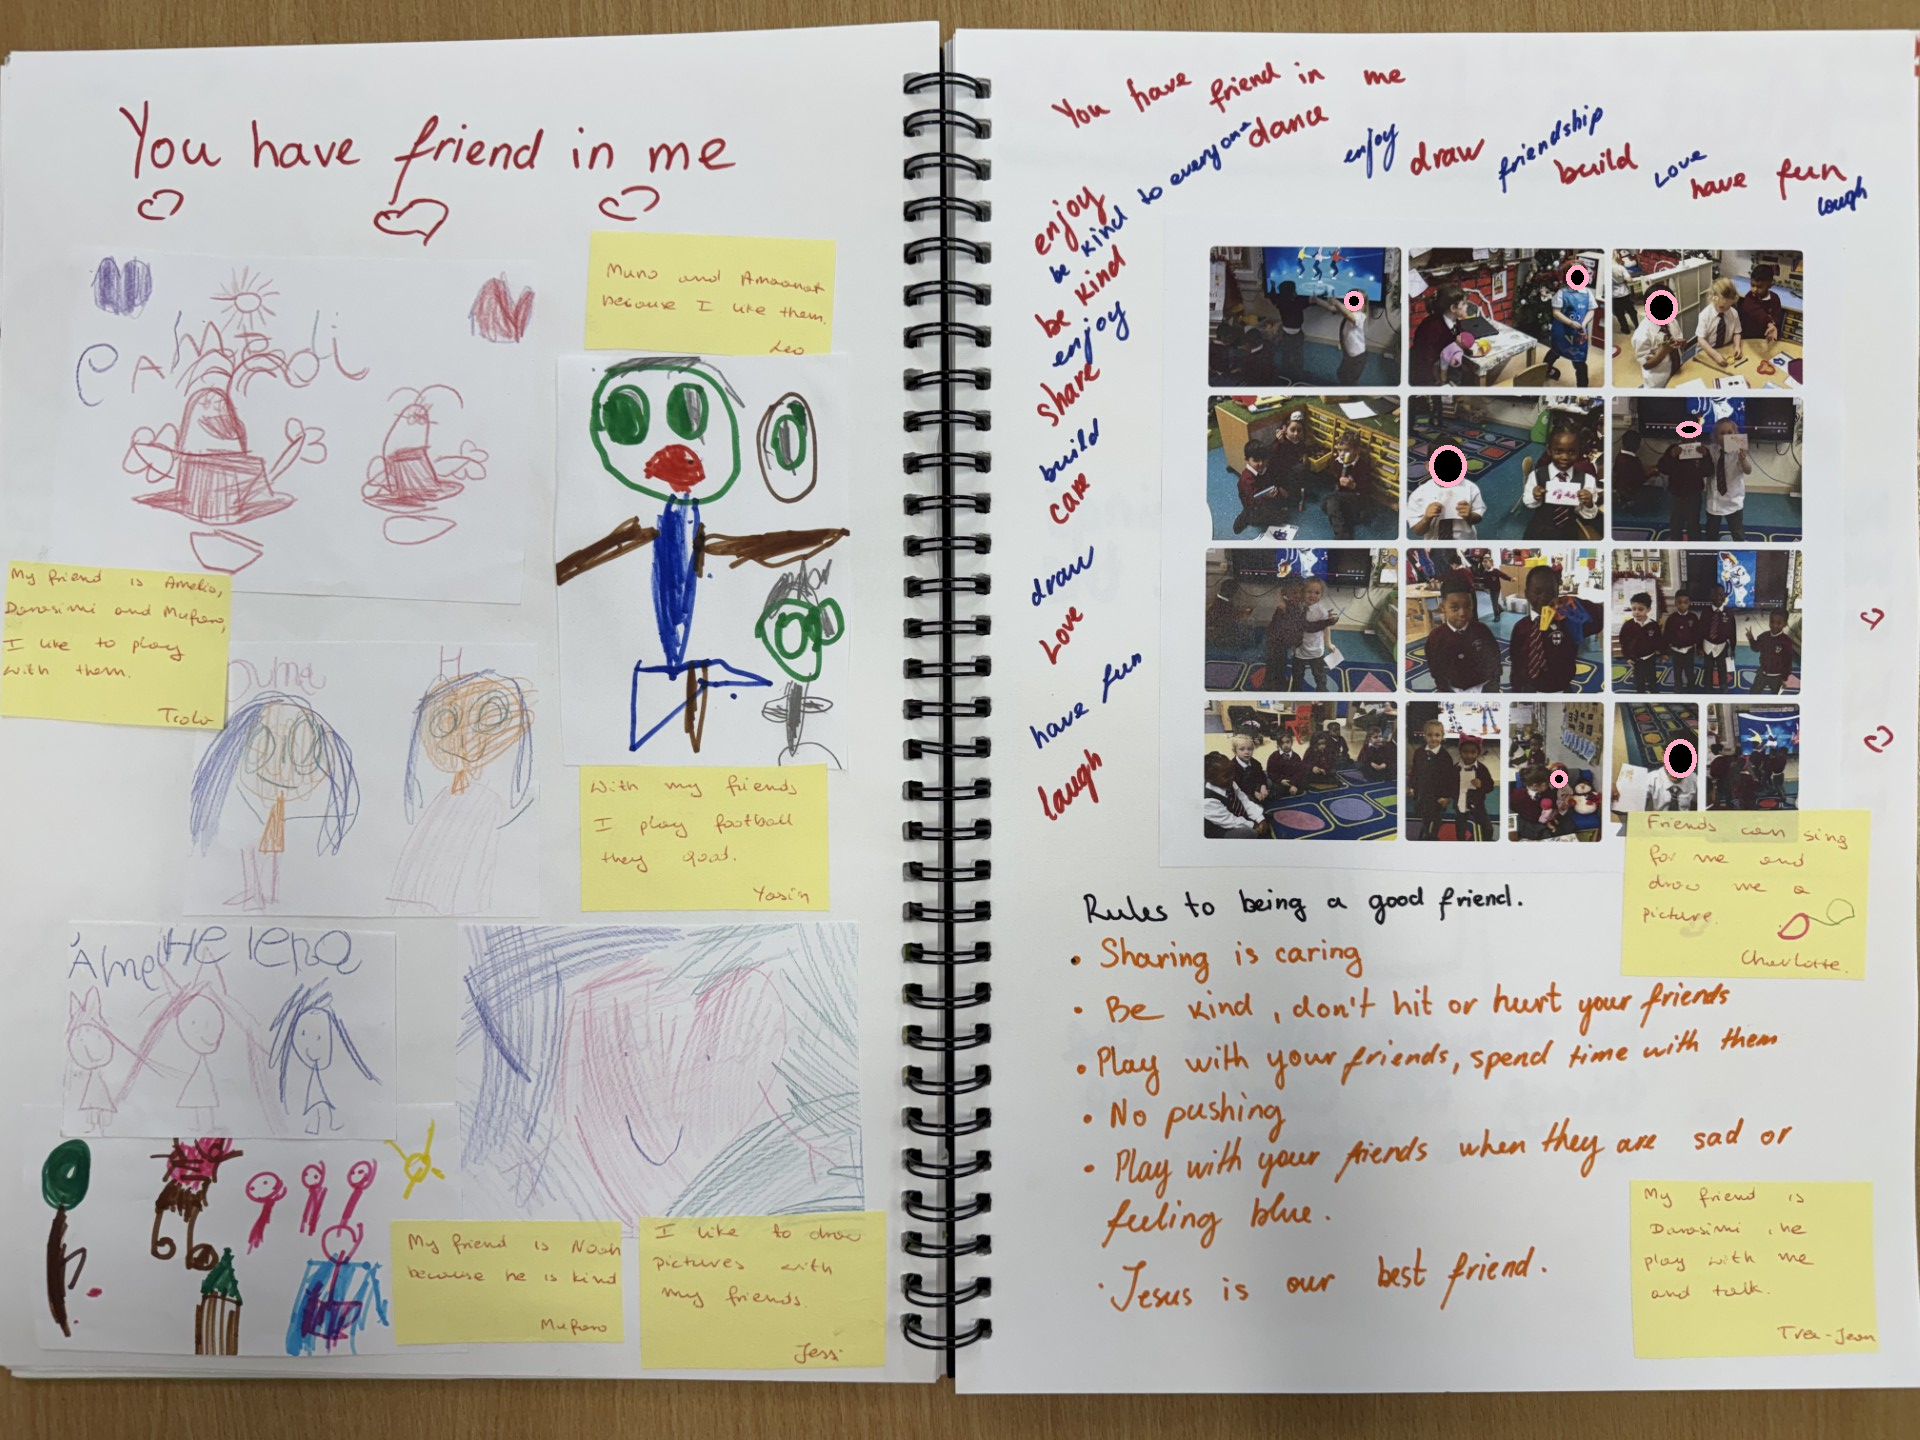 You have friend in me
Muno and Amaanat
because I like them.
Leo
My friend is Amelia,
Darasimi and Mufaro,
I like to play
with them.
H
With my friends
I play football
they good.
Yasin
Helena
My friend is Noah
because he is kind
Mufaro
I like to draw
pictures with
my friends.
Jessi
You have friend in me
be kind to everyone
dance
enjoy
draw
friendship
build
Love
have fun
laugh
enjoy
be kind
enjoy
share
build
care
draw
Love
have fun
laugh
Friends can sing
for me and
draw me a
picture.
Charlotte.
Rules to being a good friend.
• Sharing is caring
• Be kind, don't hit or hurt your friends
• Play with your friends, spend time with them
• No pushing
• Play with your friends when they are sad or
feeling blue.
• Jesus is our best friend.
My friend is
Darasimi, he
play with me
and talk.
Trea-Jean